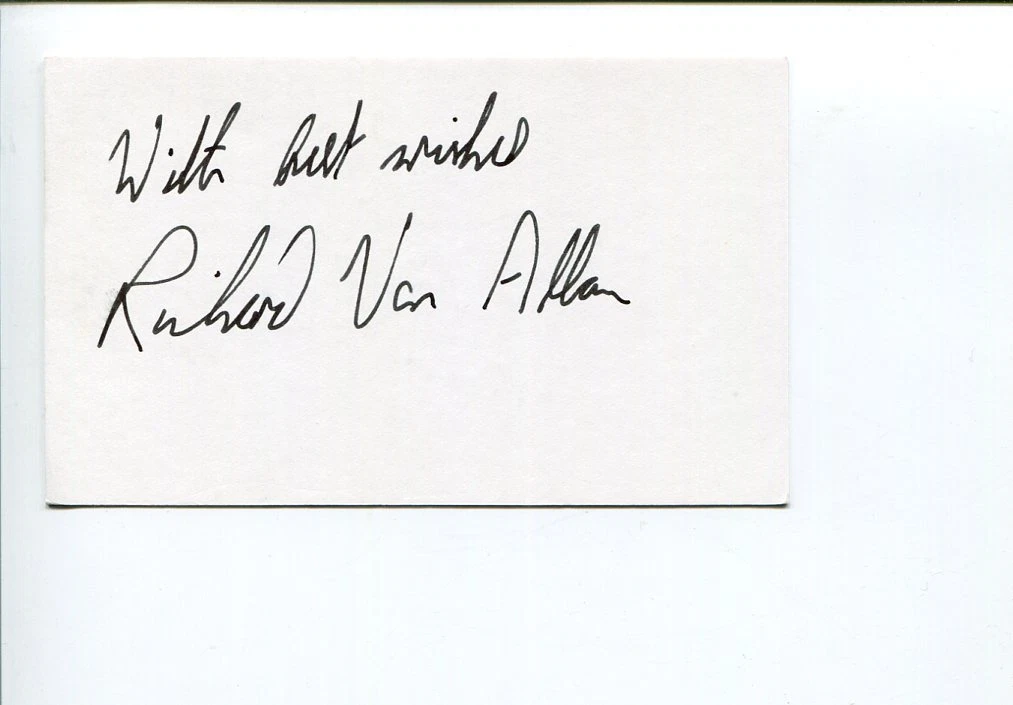 With best wishes
Richard Van Allan